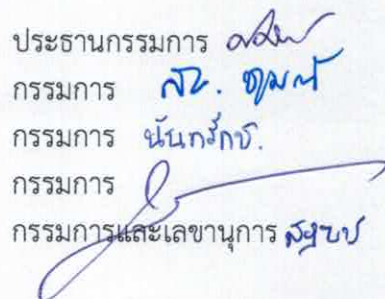 ประธานกรรมการ
กรรมการ
กรรมการ นันทรักษ์.
กรรมการ
กรรมการและเลขานุการ